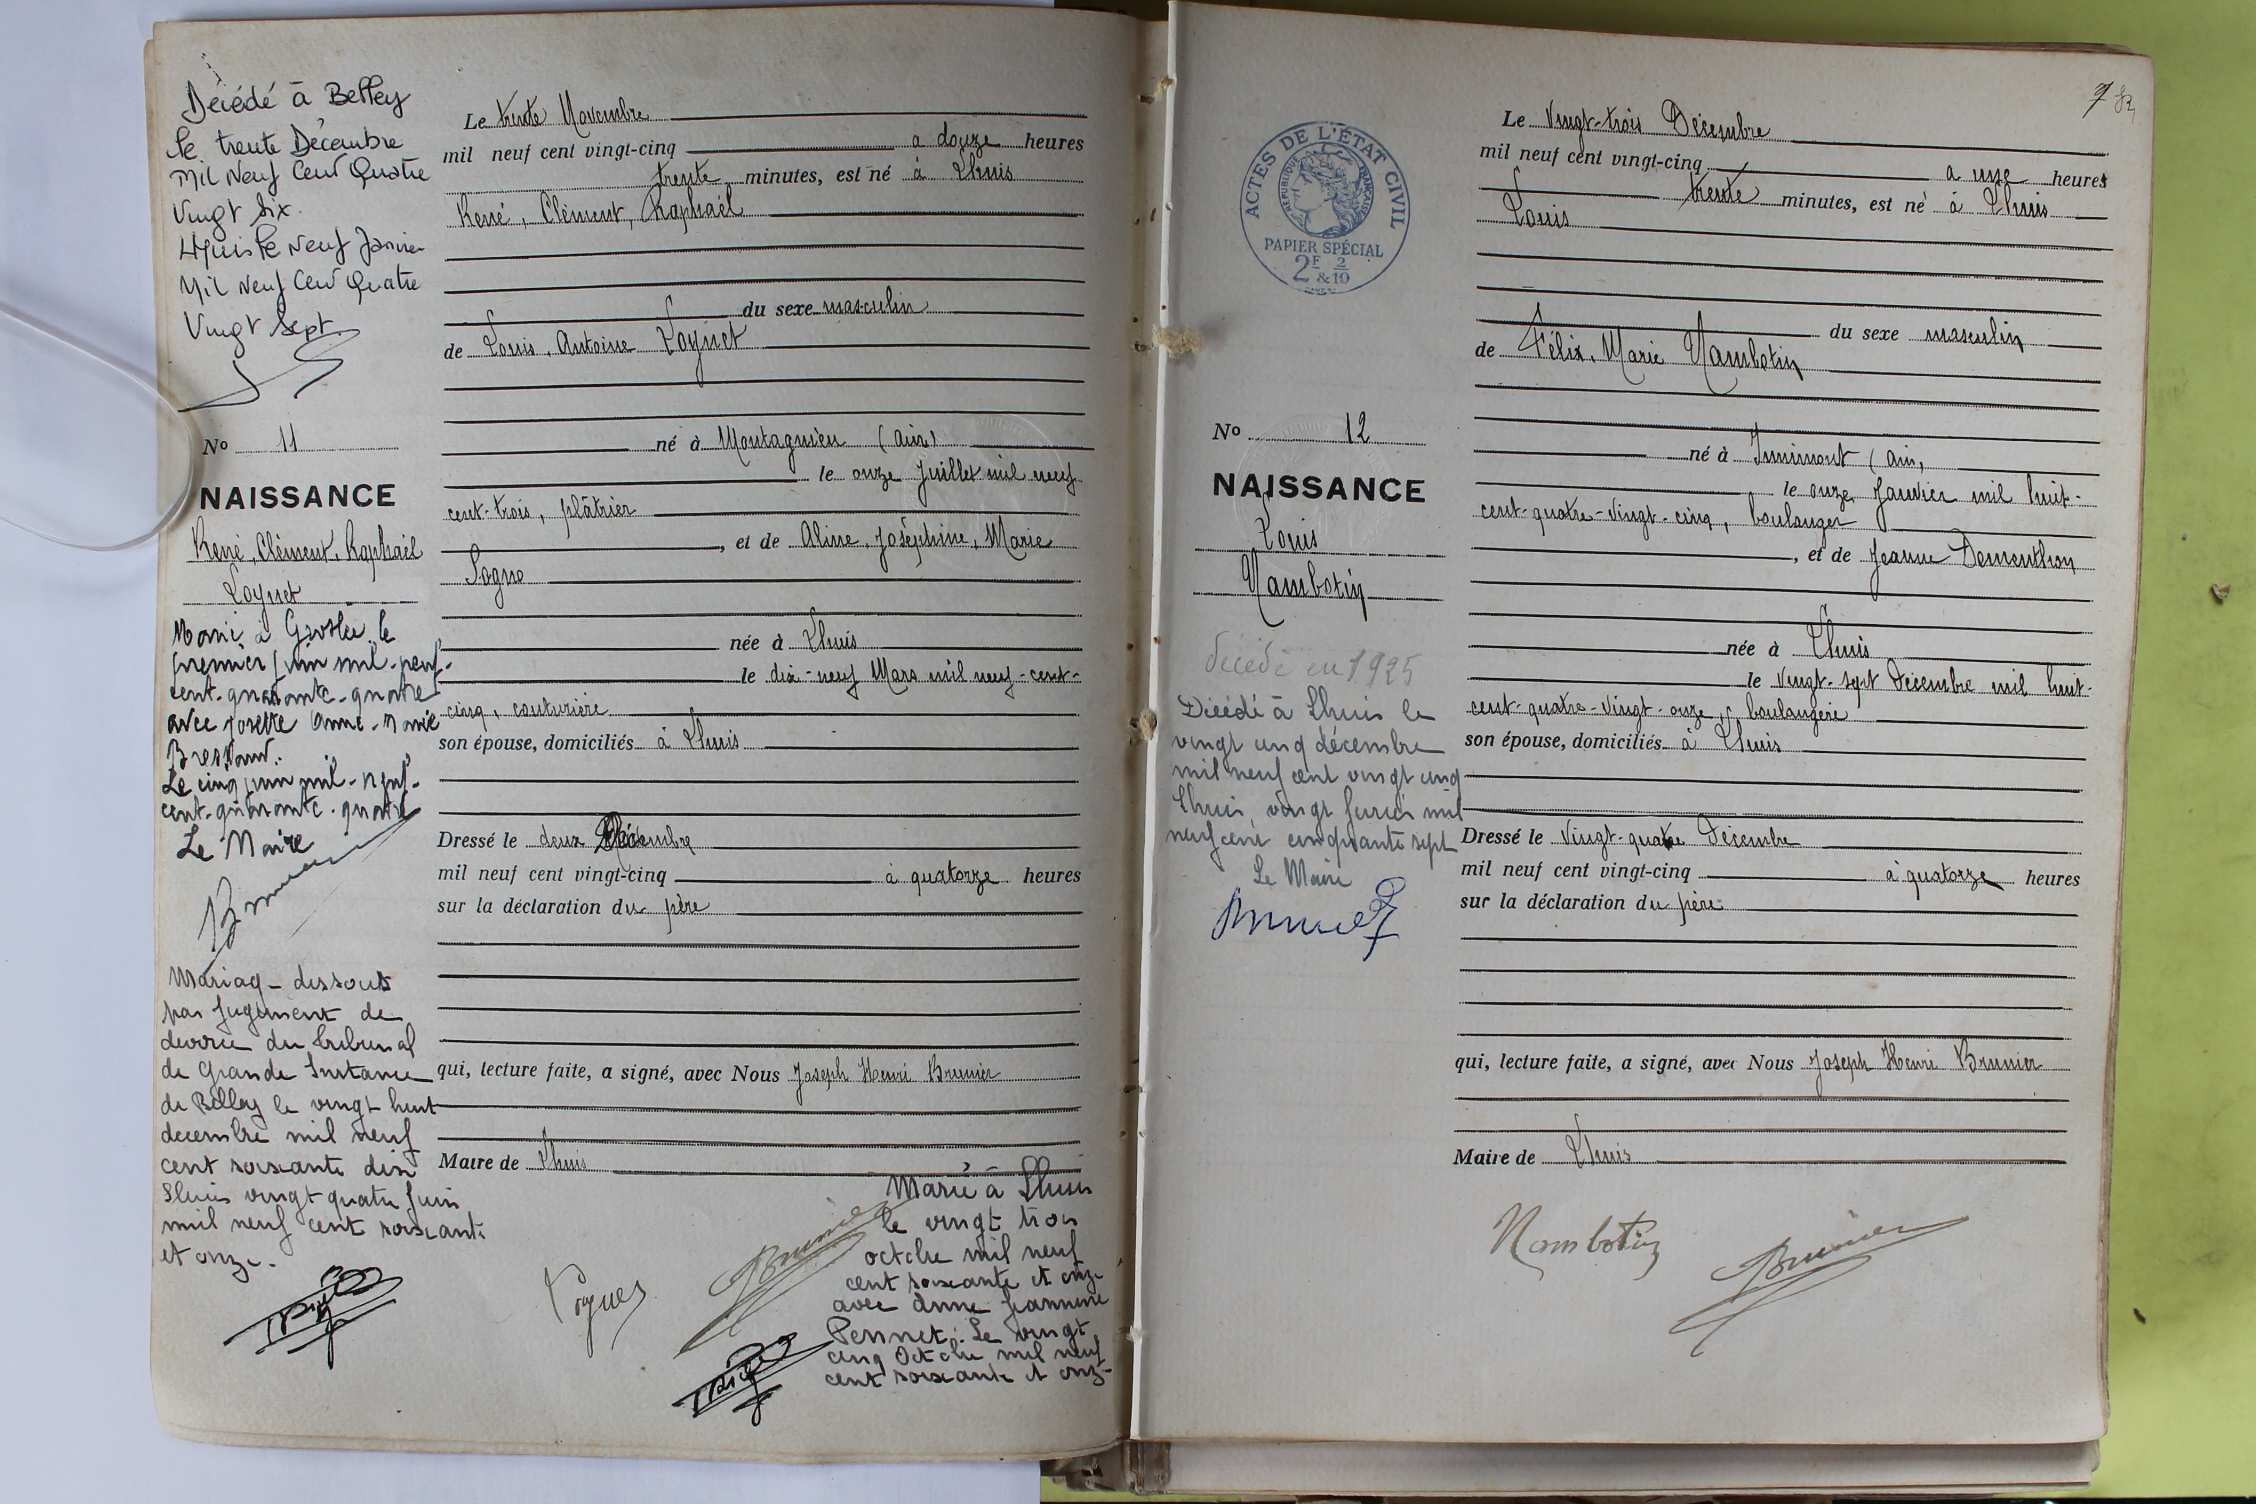 Décédé à Belley
le trente Décembre
Mil Neuf Cent Quatre
Vingt Six.
Lhuis le Neuf Janvier
Mil Neuf Cent Quatre
Vingt Sept
No 11
NAISSANCE
René, Clément, Raphaël
Loynet
Marié à Groslée le
premier Juin mil-neuf-
cent-quarante-quatre
avec Josette Anne-Marie
Le cinq juin mil-neuf-
cent-quarante-quatre
Le Maire
Mariage dissout
par Jugement de
divorce du Tribunal
de Grande Instance
de Belley le vingt huit
decembre mil neuf
cent soixante dix
Lhuis vingt quatre Juin
mil neuf cent soixante
et onze.
Le trente Novembre
mil neuf cent vingt-cinq a douze heures
trente minutes, est né à Lhuis
René, Clément, Raphaël
du sexe masculin
de Louis, Antoine Loynet
né à Montagnieu (Ain)
le onze Juillet mil neuf
cent-trois, plâtrier
, et de Aline, Joséphine, Marie
Sogno
née à Lhuis
le dix-neuf Mars mil neuf-cent-
cinq, couturière
son épouse, domiciliés à Lhuis
Dressé le deux Décembre
mil neuf cent vingt-cinq à quatorze heures
sur la déclaration du père
qui, lecture faite, a signé, avec Nous Joseph Henri Brunier
Maire de Lhuis
Brunier
Marié à Lhuis
le vingt trois
octobre mil neuf
cent soixante et onze
avec Anne Jeannine
Pennet. Le vingt
cinq Octobre mil neuf
cent soixante et onze
7 82
ACTES DE L'ÉTAT CIVIL
RÉPUBLIQUE FRANÇAISE
PAPIER SPÉCIAL
2F & 2/10
No 12
NAISSANCE
Louis
Nambotin
décédé en 1925
Décédé à Lhuis le
vingt cinq décembre
mil neuf cent vingt cinq
Lhuis, vingt Février mil
neuf cent cinquante sept
Le Maire
Le Vingt-trois Décembre
mil neuf cent vingt-cinq a onze heures
trente minutes, est né à Lhuis
Louis
du sexe masculin
de Félix, Marie Nambotin
né à Innimont (Ain,
le onze Janvier mil huit-
cent-quatre-vingt-cinq, boulanger
, et de Jeanne Dementhon
née à Lhuis
le Vingt-sept Décembre mil huit-
cent-quatre-vingt-onze, boulangère
son épouse, domiciliés à Lhuis
Dressé le Vingt-quatre Décembre
mil neuf cent vingt-cinq à quatorze heures
sur la déclaration du père
qui, lecture faite, a signé, avec Nous Joseph Henri Brunier
Maire de Lhuis
Nambotin
Brunier